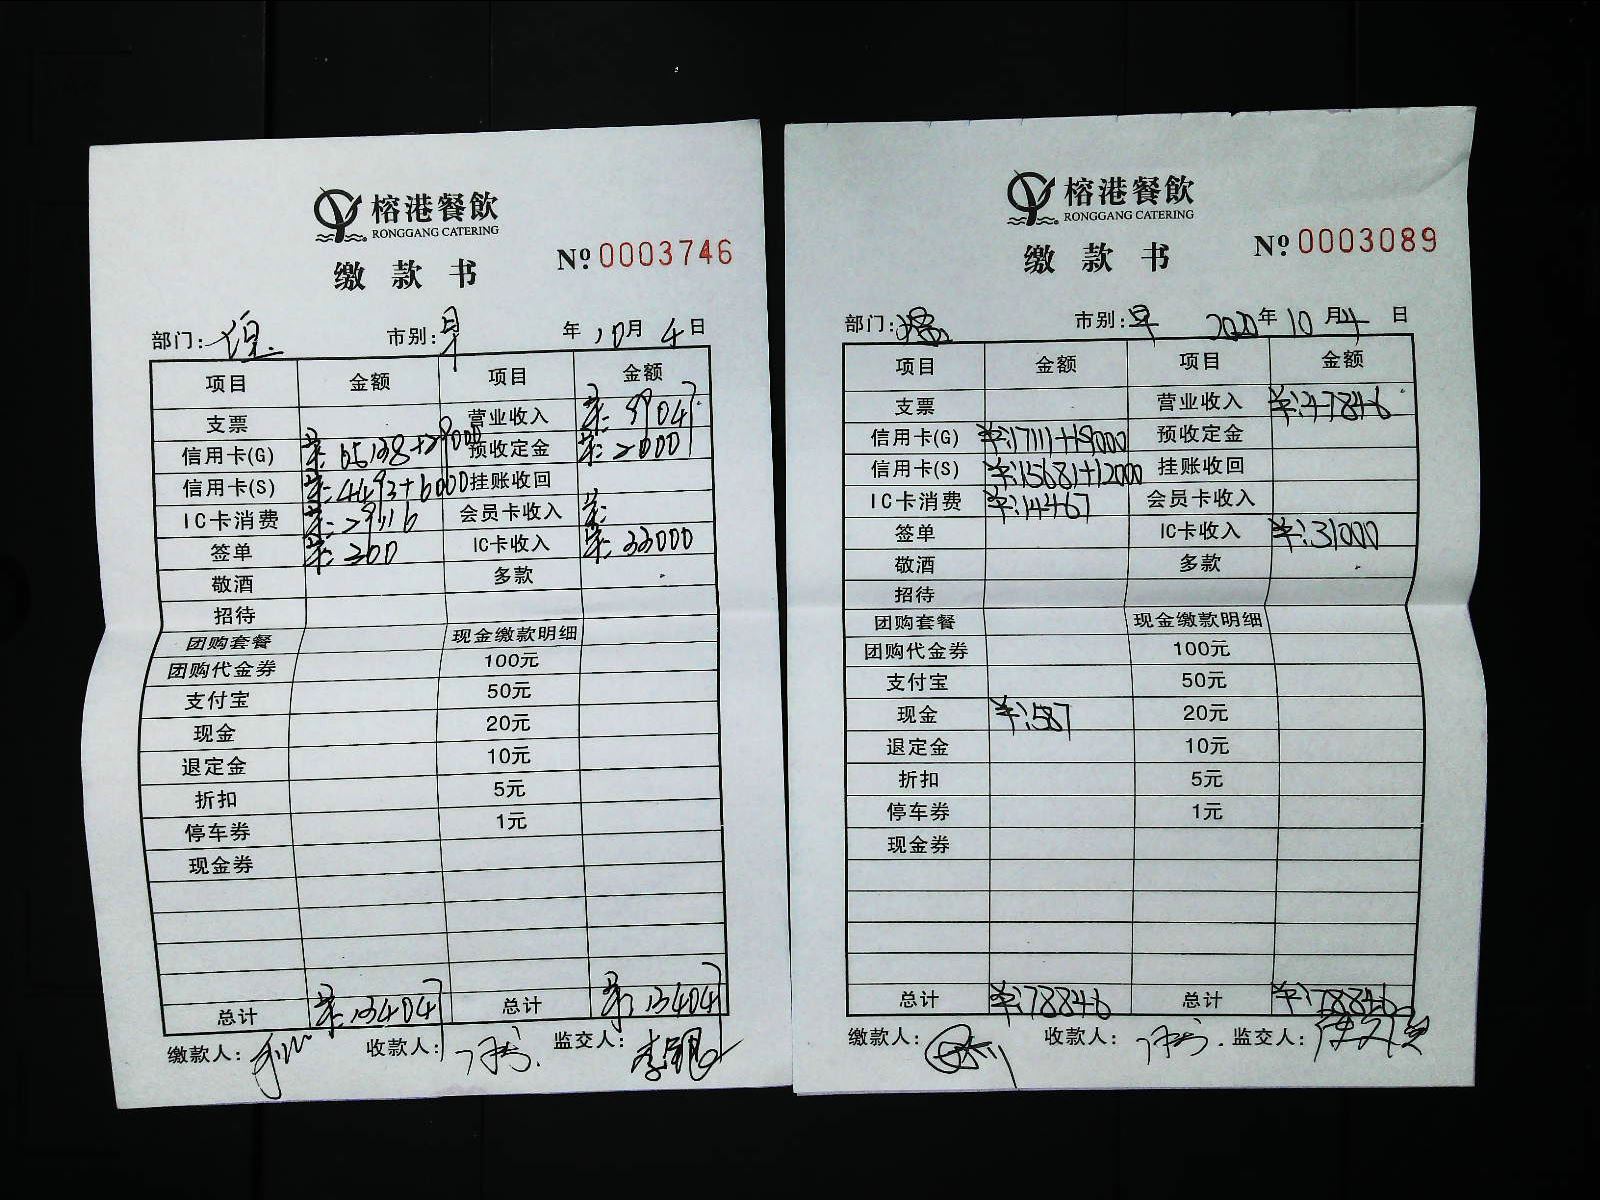 榕港餐飲
RONGGANG CATERING
缴款书
№0003746
部门: 市别:早 年10月4日
项目 金额 项目 金额
支票 营业收入 ¥:99047
信用卡(G) ¥:65138+29000 预收定金 ¥:2000
信用卡(S) ¥:4493+6000 挂账收回
IC卡消费 ¥:29116 会员卡收入 ¥:
签单 ¥:300 IC卡收入 ¥:33000
敬酒 多款
招待
团购套餐 现金缴款明细
团购代金券 100元
支付宝 50元
现金 20元
退定金 10元
折扣 5元
停车券 1元
现金券
总计 ¥:134047 总计 ¥:134047
缴款人: 收款人: 监交人:
榕港餐飲
RONGGANG CATERING
缴款书
№0003089
部门: 市别:早 2020年10月4日
项目 金额 项目 金额
支票 营业收入 ¥:47846
信用卡(G) ¥:17111+19000 预收定金
信用卡(S) ¥:15681+12000 挂账收回
IC卡消费 ¥:14467 会员卡收入
签单 IC卡收入 ¥:31000
敬酒 多款
招待
团购套餐 现金缴款明细
团购代金券 100元
支付宝 50元
现金 ¥:587 20元
退定金 10元
折扣 5元
停车券 1元
现金券
总计 ¥:78846 总计 ¥:78846
缴款人: 收款人: 监交人: